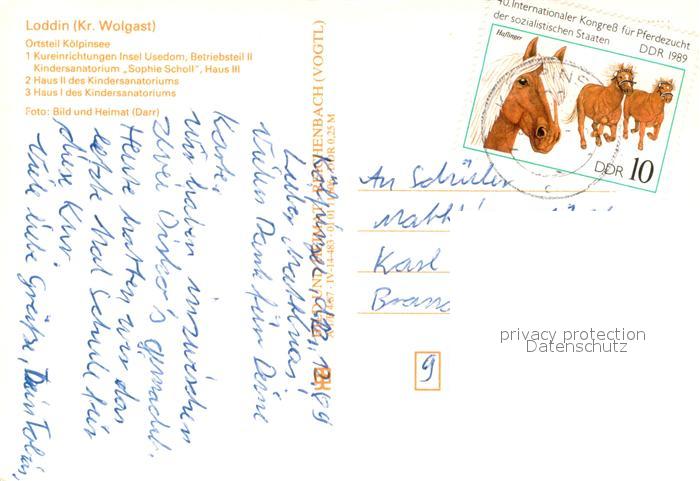 Loddin (Kr. Wolgast)
Ortsteil Kölpinsee
1 Kureinrichtungen Insel Usedom, Betriebsteil II
Kindersanatorium „Sophie Scholl", Haus III
2 Haus II des Kindersanatoriums
3 Haus I des Kindersanatoriums
Foto: Bild und Heimat (Darr)
40. Internationaler Kongreß für Pferdezucht
der sozialistischen Staaten
DDR 1989
Haflinger
DDR 10
BILD UND HEIMAT REICHENBACH (VOGTL)
IV-14-483
0,25 M
Lieber Matthias!
Vielen Dank für Deine
Karte.
Wir haben inzwischen
zwei Disko's gemacht.
Heute hatten wir das
letzte Mal Schule für
diese Kur.
Viele liebe Grüße, Dein Tobias
An Schüler
Matt
Karl
Brand
9
privacy protection
Datenschutz